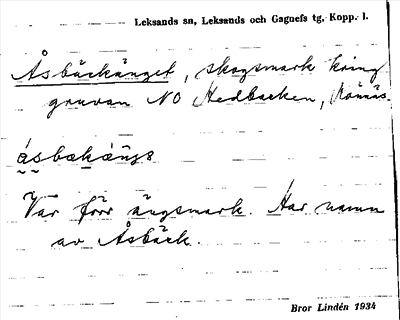 Leksands sn, Leksands och Gagnefs tg, Kopp. l.
Åsbäckänget, skogsmark kring
gruvan NO Hedbacken, Rönnäs.
åsbækäŋg
Var förr ängsmark. Har namn
av Åsbäck.
Bror Lindén 1934